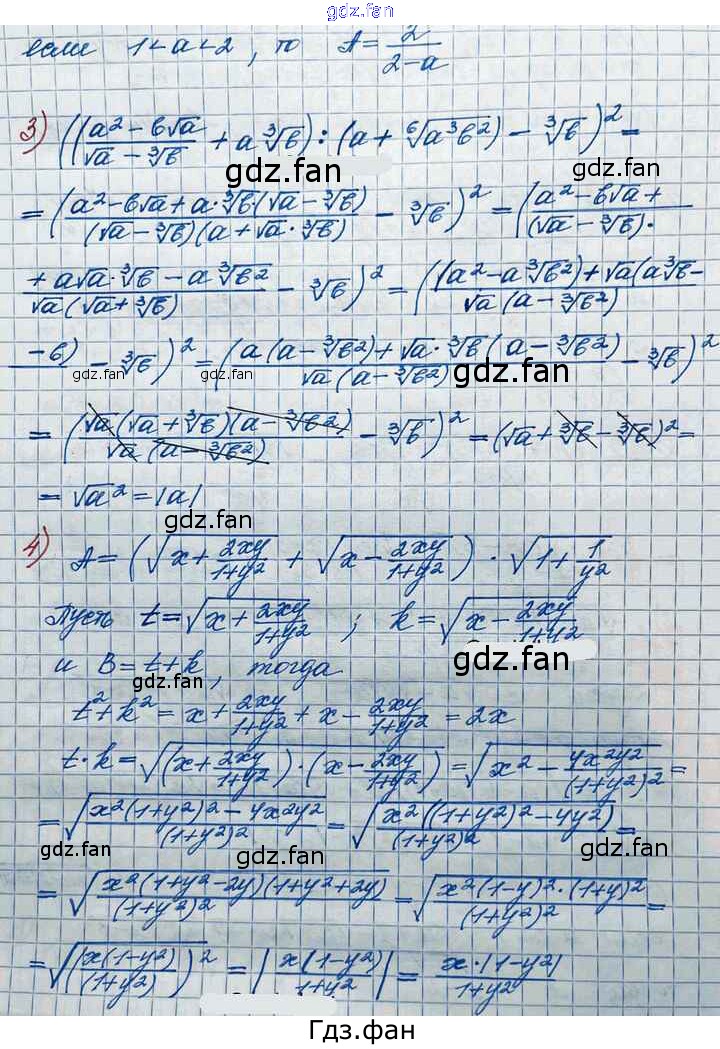 gdz.fan
если 1<a<2, то A = 2/(2-a)
3) (((a² - b√a)/(√a - ∛b) + a∛b) : (a + ⁶√(a³b²)) - ∛b)² =
gdz.fan gdz.fan
= ((a² - b√a + a·∛b(√a - ∛b))/((√a - ∛b)(a + √a·∛b)) - ∛b)² = ((a² - b√a +)/((√a - ∛b)·
+ a√a·∛b - a∛b²)/(√a(√a + ∛b)) - ∛b)² = (((a² - a∛b²) + √a(a∛b -)/(√a(a - ∛b²))
- b) - ∛b)² = ((a(a - ∛b²) + √a·∛b(a - ∛b²))/(√a(a - ∛b²)) - ∛b)²
gdz.fan gdz.fan
= ((√a(√a + ∛b)(a - ∛b²))/(√a(a - ∛b²)) - ∛b)² = (√a + ∛b - ∛b)² =
= √a² = |a|
gdz.fan
4) A = (√(x + 2xy/(1+y²)) + √(x - 2xy/(1+y²))) · √(1 + 1/y²)
gdz.fan
Пусть t = √(x + 2xy/(1+y²)); k = √(x - 2xy/(1+y²))
и B = t + k, тогда
gdz.fan gdz.fan
t² + k² = x + 2xy/(1+y²) + x - 2xy/(1+y²) = 2x
t·k = √((x + 2xy/(1+y²))·(x - 2xy/(1+y²))) = √(x² - 4x²y²/(1+y²)²) =
= √((x²(1+y²)² - 4x²y²)/(1+y²)²) = √(x²((1+y²)² - 4y²)/(1+y²)²) =
gdz.fan gdz.fan gdz.fan
= √(x²(1+y²-2y)(1+y²+2y)/(1+y²)²) = √(x²(1-y)²·(1+y)²/(1+y²)²) =
= √((x(1-y²)/(1+y²))²) = |x(1-y²)/(1+y²)| = x·|1-y²|/(1+y²)
Гдз.фан